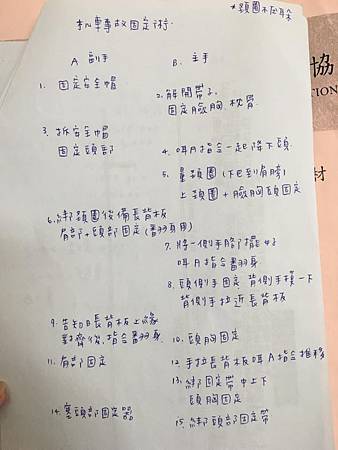 *頸圈不壓耳朵
機車事故固定術
A 副手
B. 主手
1. 固定安全帽
2. 解開帶子,
固定臉胸、枕骨
3. 拆安全帽
固定頭部
4. 叫A指令一起降下頭
5. 量頸圈(下巴到肩膀)
上頸圈+臉胸頭固定
6. 綁頸圈後備長背板
肩部+頭部固定(翻身用)
7. 將一側手腳擺好
叫A指令翻身
8. 頭側手固定背側手摸一下
背側手拉近長背板
9. 告知B長背板上緣
對齊後,指令翻身
10. 頭胸固定
11. 肩部固定
12. 手拉長背板叫A指令推移
13. 綁固定帶中上下
頭胸固定
14. 塞頭部固定器
15. 綁頭部固定帶
協
TION
材